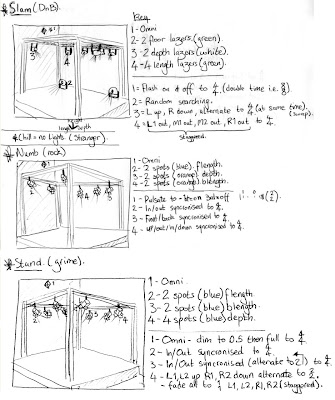 Slam (DnB).
Key
1 - Omni
2 - 2 floor lazers (green).
3 - 2 depth lazers (white).
4 - 4 length lazers (green).
1 = Flash on & off to 4/4 (double time i.e.
2 = Random searching.
3 = L up, R down, alternate to 4/4 (at same time).
4 = L1 out, M1 out, M2 out, R1 out to 4/4.
staggered.
length depth
Chill = no lights (Stranger).
Numb (rock)
1 - Omni
2 - 2 spots (blue). flength.
3 - 2 spots (orange) depth.
4 - 2 spots (orange) blength.
1 - Pulsate to
2 - In/out syncronised to 4/4.
3 - Front/back syncronised to 4/4
4 - up/out/in/down syncronised to 4/4
Stand. (grime).
1 - Omni.
2 - 2 spots (blue) flength
3 - 2 spots (blue) blength.
4 - 4 spots (blue) depth.
1 - Omni - dim to 0.5 then full to 4/4
2 - In/Out syncronised to 4/4.
3 - In/Out syncronised (alternate to 2!) to 4/4
4 - L1, L2 up R1, R2 down alternate to
- fade all to L1, L2, R1, R2 (staggered).